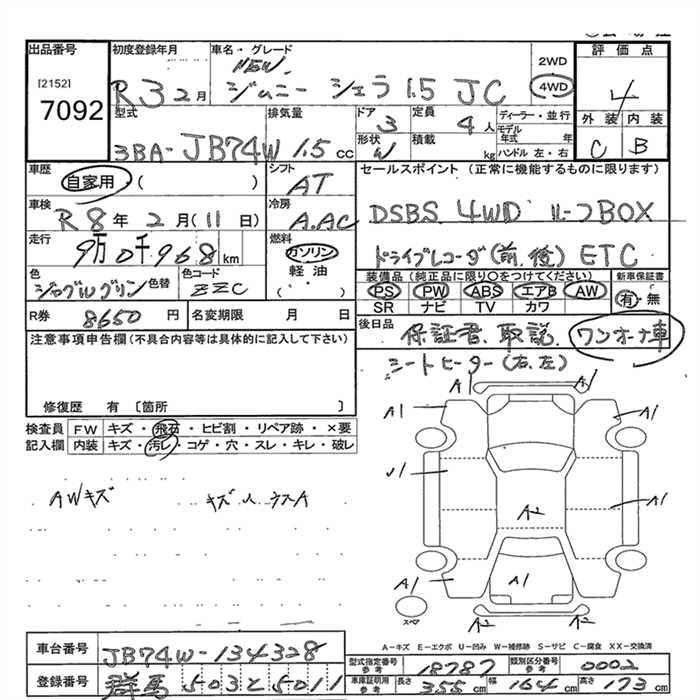 出品番号 初度登録年月 車名・グレード 評価点
[2152] NEW 2WD
7092 R3 2月 ジムニー シエラ 1.5 JC 4WD 4
型式 排気量 ドア 定員 ディーラー・並行 外装 内装
3 4人 モデル年式 年
3BA-JB74W 1.5cc 形状 W 積載 kg ハンドル 左・右 C B
車歴 シフト セールスポイント (正常に機能するものに限ります)
自家用 ( ) AT
車検 冷房 DSBS 4WD ルーフBOX
R8年2月(11日) A.AC
走行 燃料 ドライブレコーダ(前、後) ETC
9万0千968km ガソリン
色 色替 色コード 軽油 装備品(純正品に限り○をつけてください) 新車保証書
ジャングルグリン ZZC ( ) PS PW ABS エアB AW 有・無
SR ナビ TV カワ
R券 8650円 名変期限 月 日 後日品 保証書、取説、ワンオーナ車
注意事項申告欄(不具合内容等は具体的に記入して下さい)
シートヒーター(右、左)
修復歴 有 〔箇所 〕
検査員記入欄 FW キズ・飛石・ヒビ割・リペア跡・×要
内装 キズ・汚レ・コゲ・穴・スレ・キレ・破レ
A1 A1
A1 A1
AWキズ
A1
A2
A1 A1
スペア
A2 A2
A-キズ E-エクボ U-凹み W-補修跡 S-サビ C-腐食 XX-交換済
車台番号 JB74W-134328
型式指定番号参考 18787 類別区分番号参考 0002
登録番号 群馬 503 そ 5011
車庫証明用参考 長さ 355cm 幅 164cm 高さ 173cm